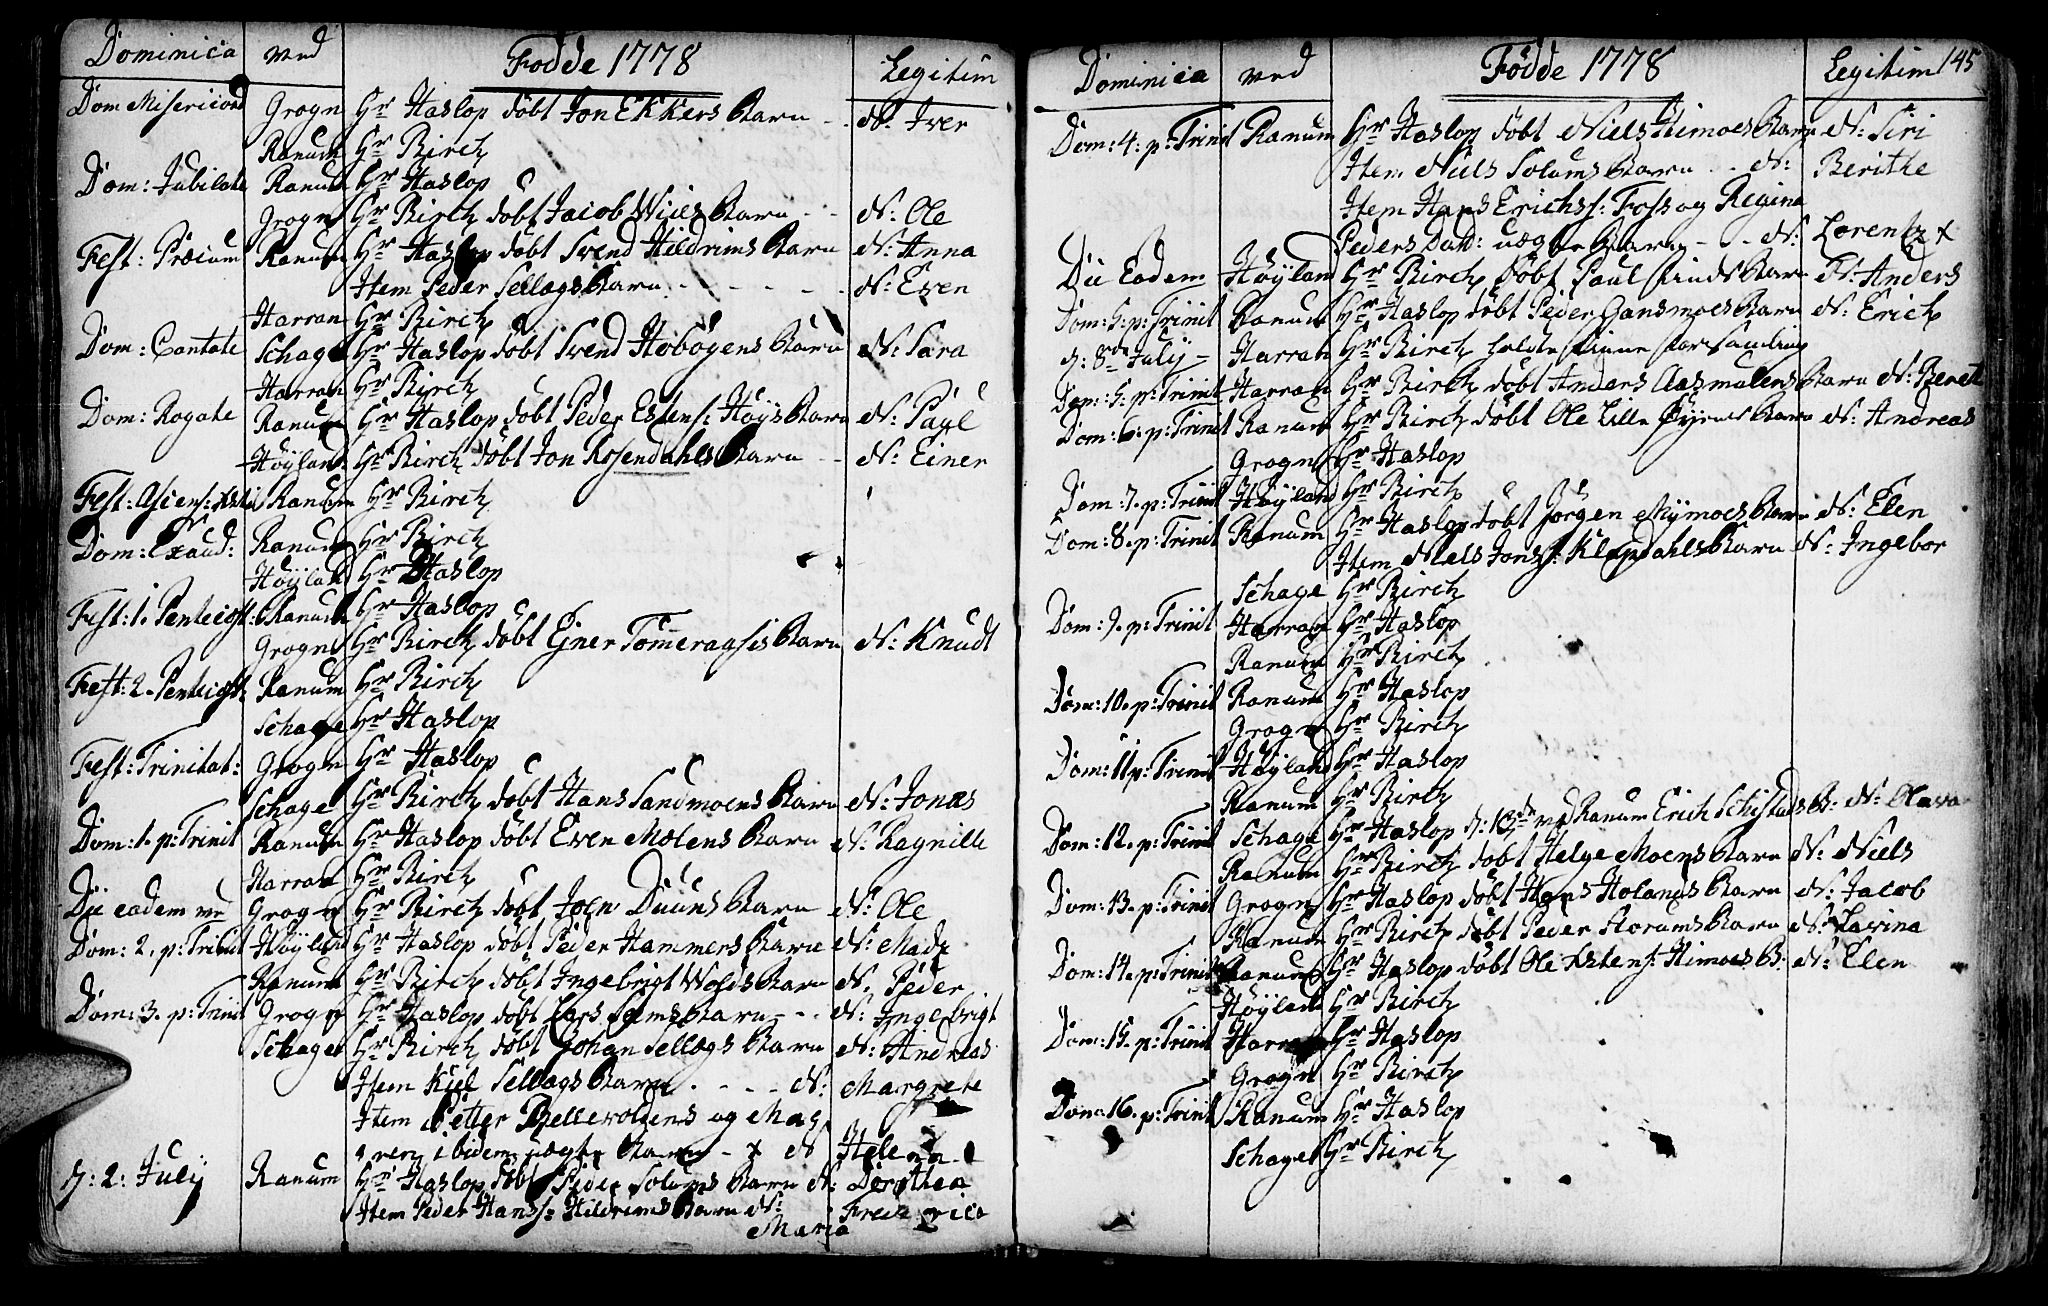 Dominica ved Fødde 1778 Legitim
Dom Misericord Grogn Hr Haslop döbt Jon Ekkers Barn - - N: Iver
Ranum Hr Birch
Dom: Jubilate Ranum Hr Haslop
Grogn Hr Birch döbt Jacob Wiies Barn - - N: Ole
Fest: Præcum Ranum Hr Haslop döbt Svend Hildrims Barn N: Anna
Item Peder Sellægs Barn - - - - - - N: Even
Harran Hr Birch
Dom: Cantate Schage Hr Haslop döbt Svend Barn N: Sara
Harran Hr Birch
Dom: Rogate Ranum Hr Haslop döbt Peder Estens: Höys Barn N: Paul
Höyland Hr Birch döbt Jon Rosendahls Barn - - N: Einer
Fest: Ascens: Xsti Ranum Hr Birch
Dom: Exaud: Ranum Hr Birch
Höyland Hr Haslop
Fest: 1. Pentecost: Ranum Hr Haslop
Grogn Hr Birch döbt Ejner Tömeraases Barn N: Knudt
Fest: 2. Pentecost: Ranum Hr Birch
Schage Hr Haslop
Fest: Trinitat: Grogn Hr Haslop
Schage Hr Birch döbt Hans Sandmoens Barn N: Jonas
Dom: 1. p: Trinit Ranum Hr Haslop döbt Even Moens Barn N: Ragnille
Harran Hr Birch
Die eadem ved Grogn Hr Birch döbt Joen Duuns Barn N: Ole
Dom: 2. p: Trinit Höyland Hr Haslop döbt Peder Hammers Barn N:
Ranum Hr Birch döbt Ingebrigt Wolds Barn N. Peder
Dom: 3. p: Trinit Grogn Hr Haslop döbt Lars Sems Barn - - - N: Ingebrigt
Schage Hr Birch döbt Johan Sellægs Barn N: Andreas
Item Kiel Sellægs Barn . - - - N: Margrete
Item Petter og
ibidem uægte Barn - x N Helena
D: 2: July Ranum Hr Haslop döbt Peder Solums Barn N: Dorothea
Item Peder Hanss: Hildrims Barn N: Frederica
Maria
Dominica ved Födde 1778 Legitim 145
Dom: 4: p: Trinit Ranum Hr Haslop döbt Niels Himoes Barn N: Siri
Item Niels Solums Barn - - N: Berithe
Item Hans Erichss: Foss og Regina
Peders Datt: uægte Barn - - N: Lorentz x
Die Eodem Höyland Hr Birch döbt Paul Barn N: Anders
Dom: 5: p: Trinit Ranum Hr Haslop döbt Peder Gansmoes Barn N: Erich
D: 8de July - Harran Hr Birch holdte
Dom: 5. p: Trinit Harran Hr Birch döbt Anders Aasmulens Barn N: Beret
Dom: 6: p: Trinit Ranum Hr Birch döbt Ole Lille Öyens Barn N: Andreas
Grogn Hr Haslop
Dom: 7. p: Trinit Höyland Hr Birch
Dom: 8. p: Trinit Ranum Hr Haslop döbt Jörgen Myrmoes Barn N: Elen
Item Niels Jonss: Klepdahls Barn N: Ingebor
Schage Hr Birch
Dom: 9. p: Trinit Harran Hr Haslop
Ranum Hr Birch
Dom: 10. p: Trinit Ranum Hr Haslop
Grogn Hr Birch
Dom: 11 p: Trinit Höyland Hr Haslop
Ranum Hr Birch
Dom: 12. p: Trinit Schage Hr Haslop ved Ranum Erich Schistads B. N: Olava
Ranum Hr Birch döbt Helge Moens Barn N: Niels
Dom: 13. p: Trinit Grogn Hr Haslop döbt Hans Holands Barn N: Jacob
Ranum Hr Birch döbt Peder Barn N: Lavina
Dom: 14. p: Trinit Ranum Hr Haslop döbt Ole Estens: Himoes B: N: Elen
Höyland Hr Birch
Dom: 15. p: Trinit Harran Hr Haslop
Grogn Hr Birch
Dom: 16. p: Trinit Ranum Hr Haslop
Schage Hr Birch